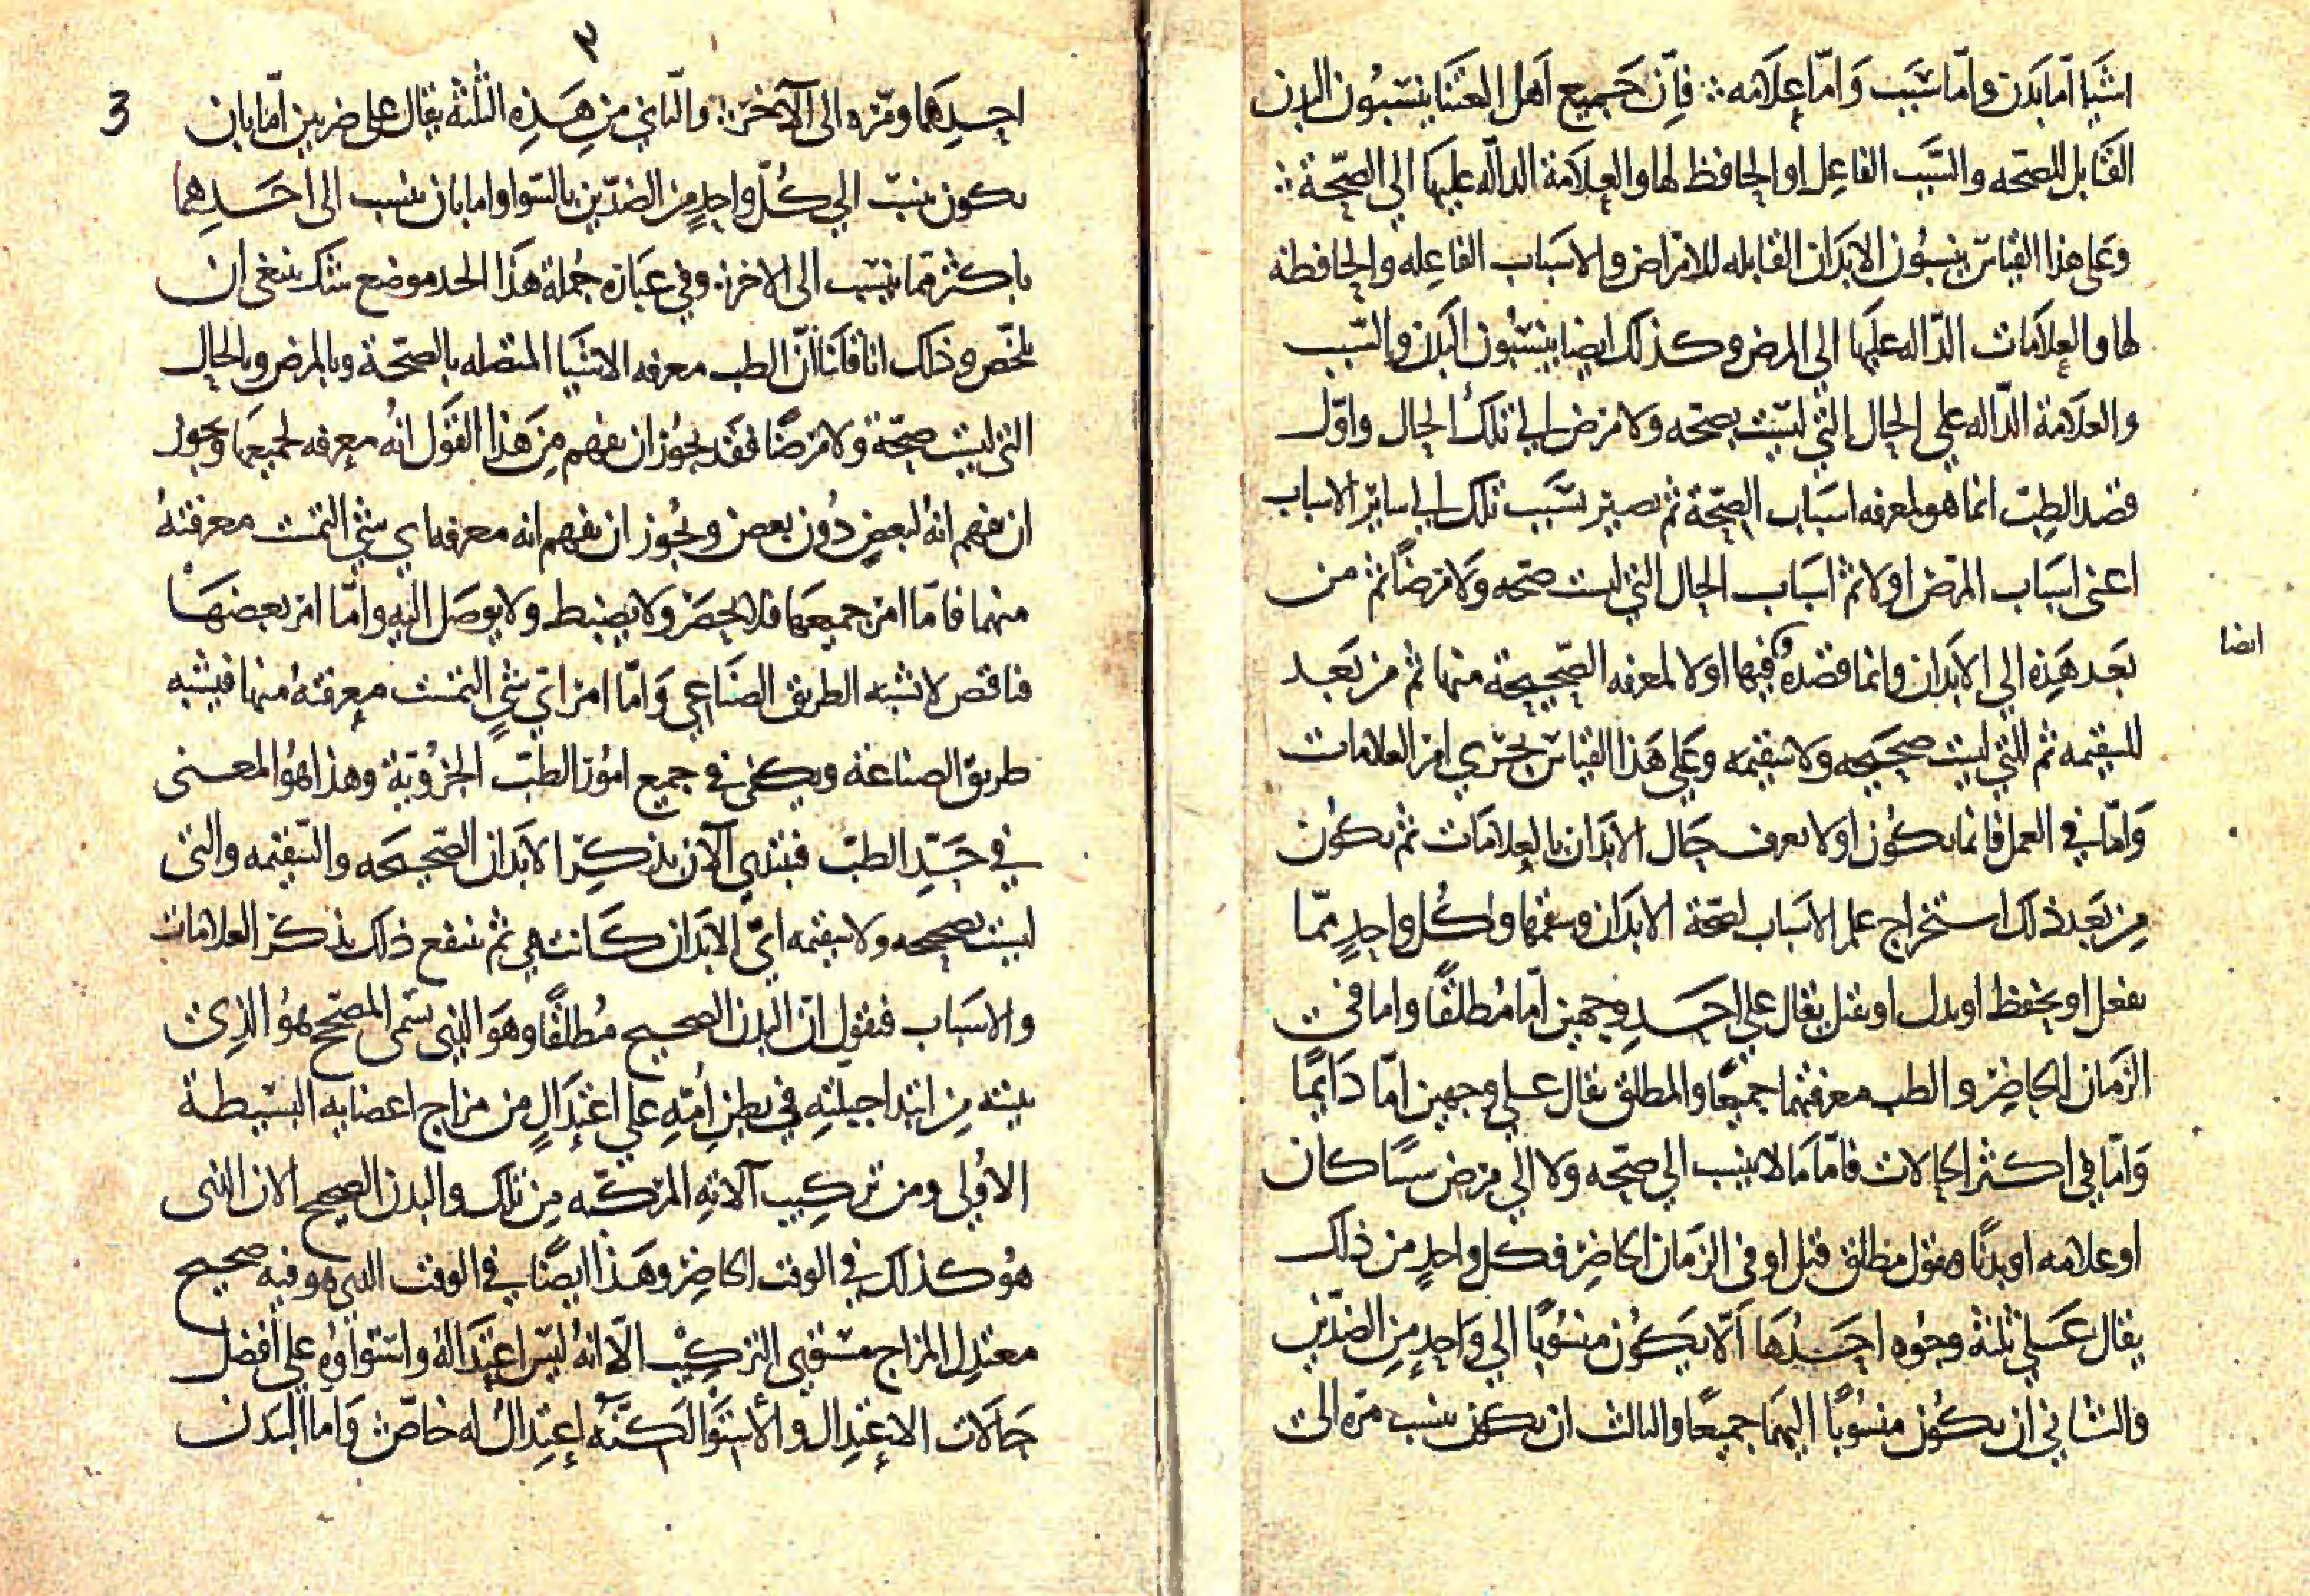 اشيا اما بدن واما سبب واما علامه فان جميع اهل العنا ينسبون البدن
القابل للصحه والسبب الفاعل او الحافظ لها والعلامة الداله عليها الى الصحة
وعلى هذا القياس ينسبون الابدان القابله للامراض والاسباب الفاعله والحافظه
لها والعلامات الداله عليها الى المرض وكذلك ايضا ينسبون البدن والسبب
والعلامة الداله على الحال التي ليست بصحه ولا مرض الى تلك الحال واول
قصد الطب انما هو لمعرفه اسباب الصحة ثم تصير بسبب تلك الى ساير الاسباب
اعنى اسباب المرض اولا ثم اسباب الحال التي ليست صحه ولا مرضا ثم من
بعد هذه الى الابدان وانما قصده فيها اولا لمعرفه الصحيحة منها ثم من بعد
ايضا
للسقيمه ثم للتي ليست صحيحه ولا سقيمه وعلى هذا القياس يجري امر العلامات
واما في العمل فانما يكون اولا تعرف حال الابدان بالعلامات ثم يكون
من بعد ذلك استخراج علم الاسباب لصحة الابدان وسقمها وكل واحد مما
يفعل او يحفظ او يدل او يقبل يقال على احد وجهين اما مطلقا واما في
الزمان الحاضر والطب معرفتهما جميعا والمطلق يقال على وجهين اما دايما
واما في اكثر الحالات فاما ما لا ينسب الى صحه ولا الى مرض سببا كان
او علامه او بدنا بقول مطلق قيل او في الزمان الحاضر فكل واحد من ذلك
يقال على ثلثة وجوه احدها الا يكون منسوبا الى واحد من الضدين
والثاني ان يكون منسوبا اليهما جميعا والثالث ان يكون ينسب مره الى
٢
3
احدهما ومره الى الآخر والثاني من هذه الثلثة يقال على ضربين اما بان
يكون ينسب الى كل واحد من الضدين بالسوا واما بان ينسب الى احدهما
باكثر مما ينسب الى الاخر وفي عبارة جملة هذا الحد موضع شك ينبغي ان
يلخص وذلك انا قلنا ان الطب معرفه الاشيا المتصله بالصحة وبالمرض وبالحال
التي ليست صحة ولا مرضا فقد يجوز ان يفهم من هذا القول انه معرفه لجميعها ويجوز
ان يفهم انه لبعض دون بعض ويجوز ان يفهم انه معرفه اي شي التمست معرفته
منها فاما امر جميعها فلا يحصر ولا يضبط ولا يوصل اليه واما امر بعضها
فناقص لا يشبه الطريق الصناعي واما امر اي شي التمست معرفته منها فيشبه
طريق الصناعة ويكفى في جميع امور الطب الجزوية وهذا هو المعنى
في حد الطب فنبتدي الآن بذكر الابدان الصحيحه والسقيمه والتي
ليست بصحيحه ولا سقيمه اي الابدان كانت هي ثم نتبع ذلك بذكر العلامات
والاسباب فنقول ان البدن الصحيح مطلقا وهو الذي يسمى المصحح هو الذي
بنيته من ابتدا جبلته في بطن امه على اعتدال من مزاج اعضايه البسيطة
الاولى ومن تركيب آلاته المركبه من تلك والبدن الصحيح الان الذي
هو كذلك في الوقت الحاضر وهذا ايضا في الوقت الذي هو فيه صحيح
معتدل المزاج مستوي التركيب الا انه ليس اعتداله واستواوه على افضل
حالات الاعتدال والاستوا لكنه اعتدال له خاص واما البدن